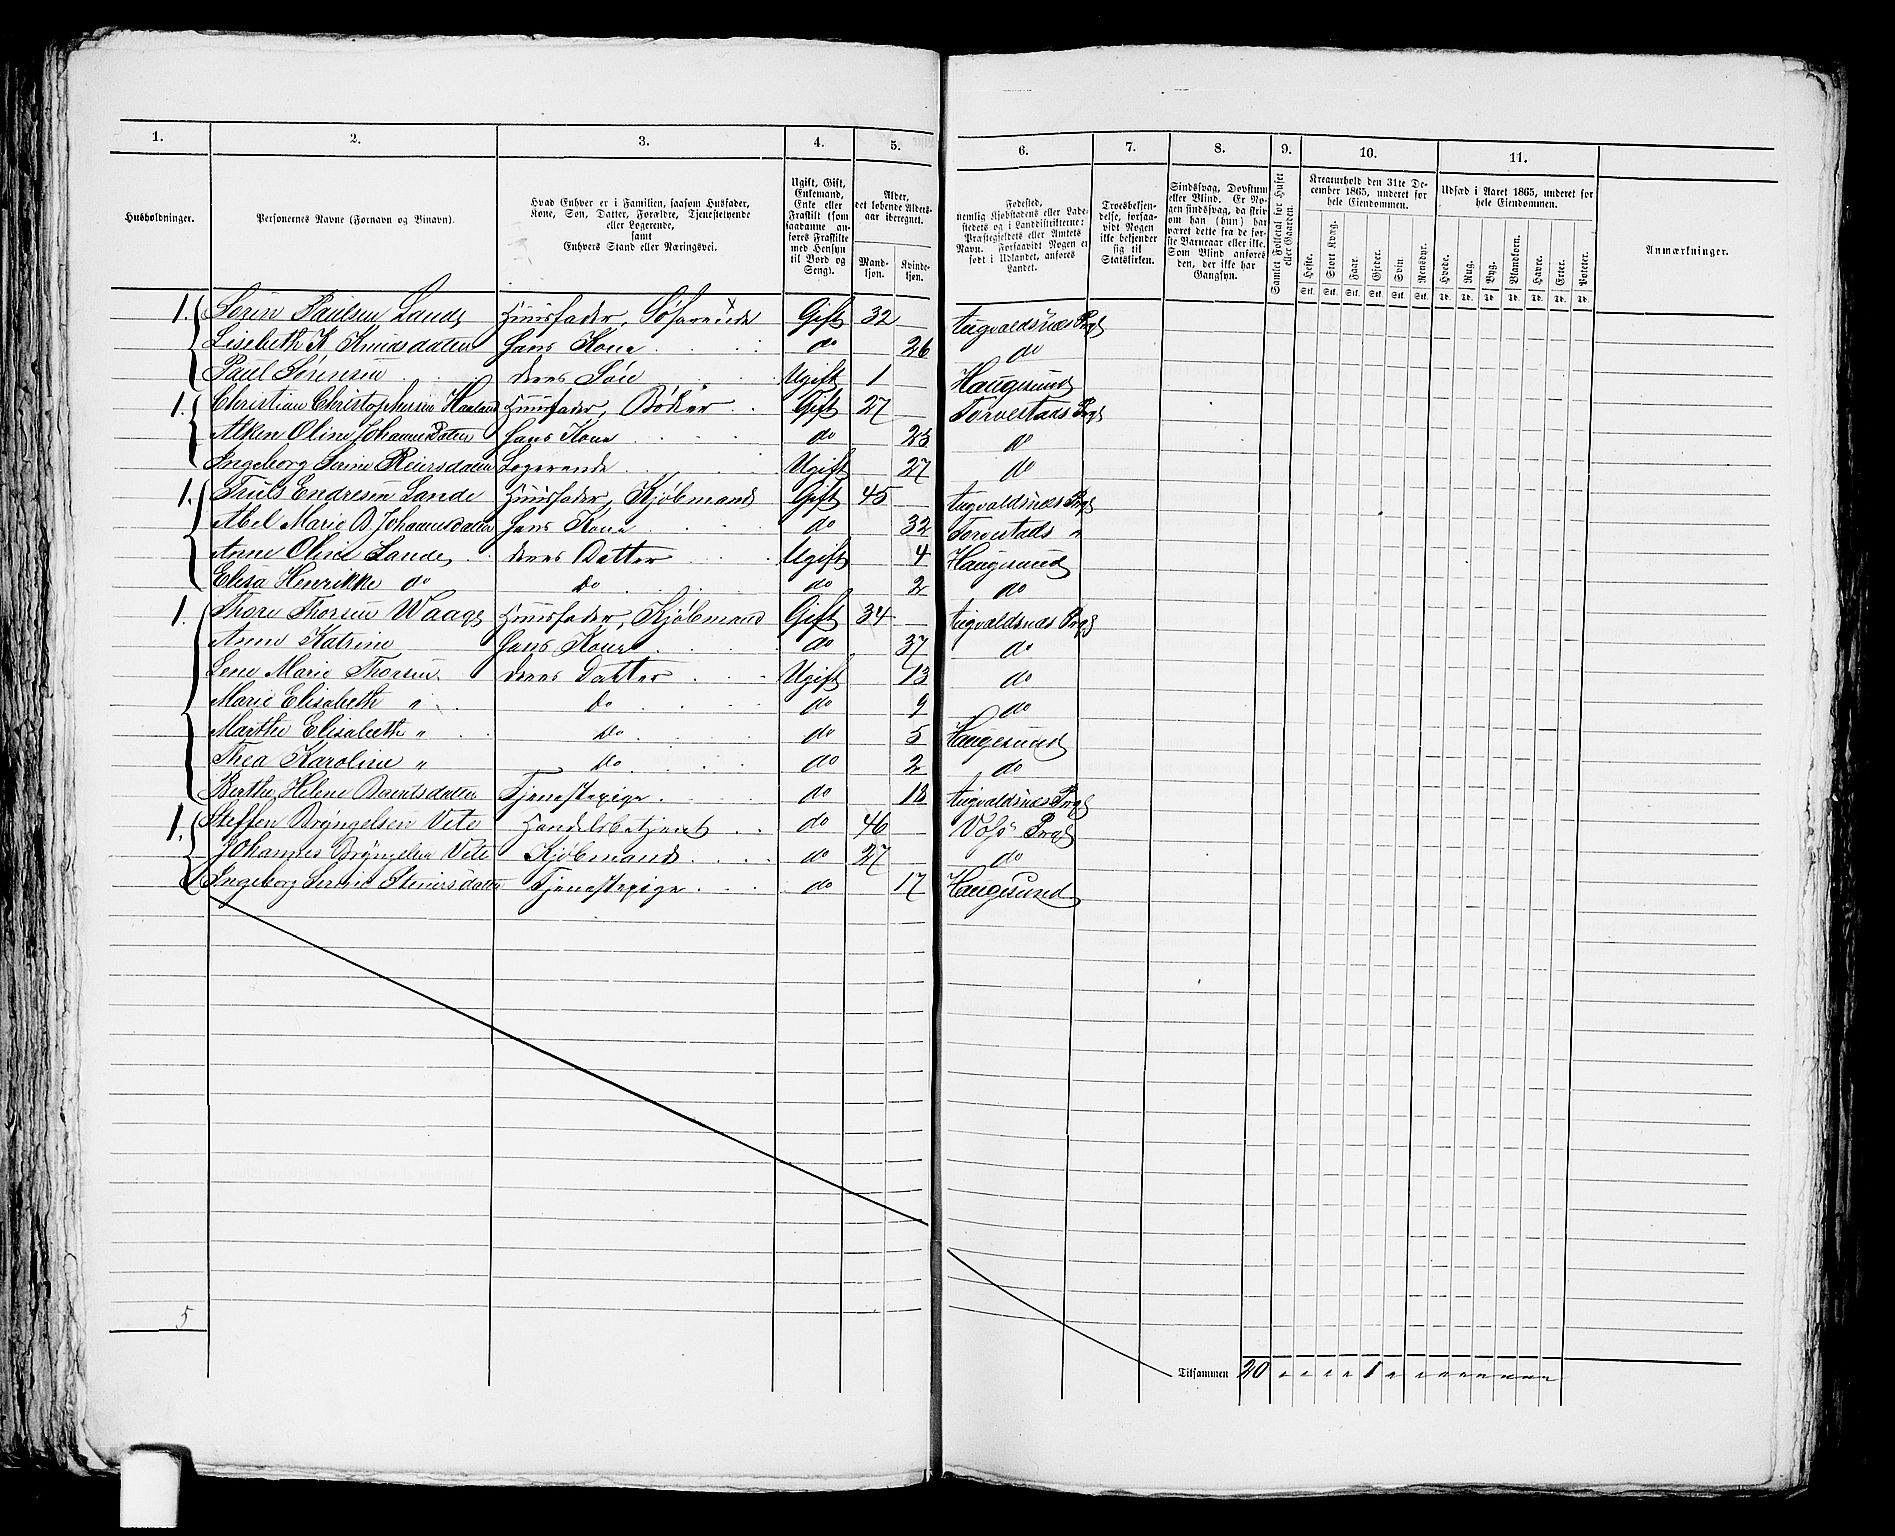 1. 2. 3. 4. 5. 6. 7. 8. 9. 10. 11.
Husholdninger.
Personernes Navne (Fornavn og Binavn).
Hvad Enhver er i Familien, saasom Husfader, Kone, Søn, Datter, Forældre, Tjenestetyende eller Logerende, samt Enhvers Stand eller Næringsvei.
Ugift, Gift, Enkemand, Enke eller Fraskilt (som saadanne anføres Fraskilte med Hensyn til Bord og Seng).
Alder, det løbende Aldersaar iberegnet.
Mandkjøn. Kvindekjøn.
Fødested, nemlig Kjøbstadens eller Ladestedets og i Landdistrikterne: Præstegjeldets eller Amtets Navn. Forsaavidt Nogen er født i Udlandet, anføres Landet.
Troesbekjendelse, forsaavidt Nogen ikke bekjender sig til Statskirken.
Sindssvag, Døvstum eller Blind. Er Nogen sindssvag, da skrives om han (hun) har været dette fra de første Barneaar eller ikke. Som Blind anføres den, der ikke har Gangsyn.
Samlet Folketal for Huset eller Gaarden.
Kreaturhold den 31te December 1865, underet for hele Eiendommen.
Heste. Stort Kvæg. Faar. Gjeder. Svin. Rensdyr.
Udsæd i Aaret 1865, underet for hele Eiendommen.
Hvede. Rug. Byg. Blandkorn. Havre. Erter. Poteter.
Stk. Stk. Stk. Stk. Stk. Stk. Td. Td. Td. Td. Td. Td. Td.
Anmærkninger.
1. Sørin Paulsen Lande Huusfader, Søfarende Gift 32 Augvaldsnæs Prgd
Lisebeth K Knudsdatter Hans Kone do 26 do
Paul Sørensen deres Søn Ugift 1 Haugesund
1. Christian Christophersen Haaland Huusfader, Bødker Gift 27 Torvestads Prgd
Alken Oline Johannesdatter Hans Kone do 23 do
Ingeborg Serine Reiersdatter Logerende Ugift 27 do
1. Truls Endresen Lande Huusfader, Kjøbmand Gift 45 Augvaldsnæs Prgd
Abel Marie B. Johannesdatter Hans Kone do 32 Torvestads "
Anne Oline Lande deres Datter Ugift 4 Haugesund
Elisa Henrikke do do do 2 do
1. Thore Thorsen Waage Huusfader, Kjøbmand Gift 34 Augvaldsnæs Prgd
Anne Katrine Hans Kone do 37 do
Lene Marie Thorsen deres Datter Ugift 13 do
Marie Elisabeth " do do 9 do
Marthe Elisabeth " do do 5 Haugesund
Thea Karoline " do do 2 do
Berthe Helene Berntsdatter Tjenestepige do 18 Augvaldsnæs Prgd
1. Steffen Bryngelsen Vete Handelsbetjent do 46 Vos Prgd
Johannes Bryngelsen Vete Kjøbmand do 27 do
Ingeborg Serine Steinersdatter Tjenestepige do 17 Haugesund
5
Tilsammen 20 " " " " 1 " " " " " " " " "